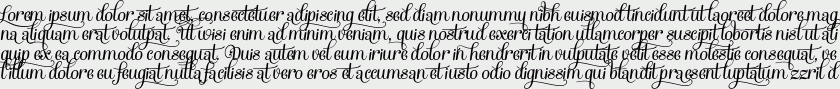 Lorem ipsum dolor sit amet, consectetuer adipiscing elit, sed diam nonummy nibh euismod tincidunt ut laoreet dolore mag
na aliquam erat volutpat. Ut wisi enim ad minim veniam, quis nostrud exerci tation ullamcorper suscipit lobortis nisl ut ali
quip ex ea commodo consequat. Duis autem vel eum iriure dolor in hendrerit in vulputate velit esse molestie consequat, ve
l illum dolore eu feugiat nulla facilisis at vero eros et accumsan et iusto odio dignissim qui blandit praesent luptatum zzril d